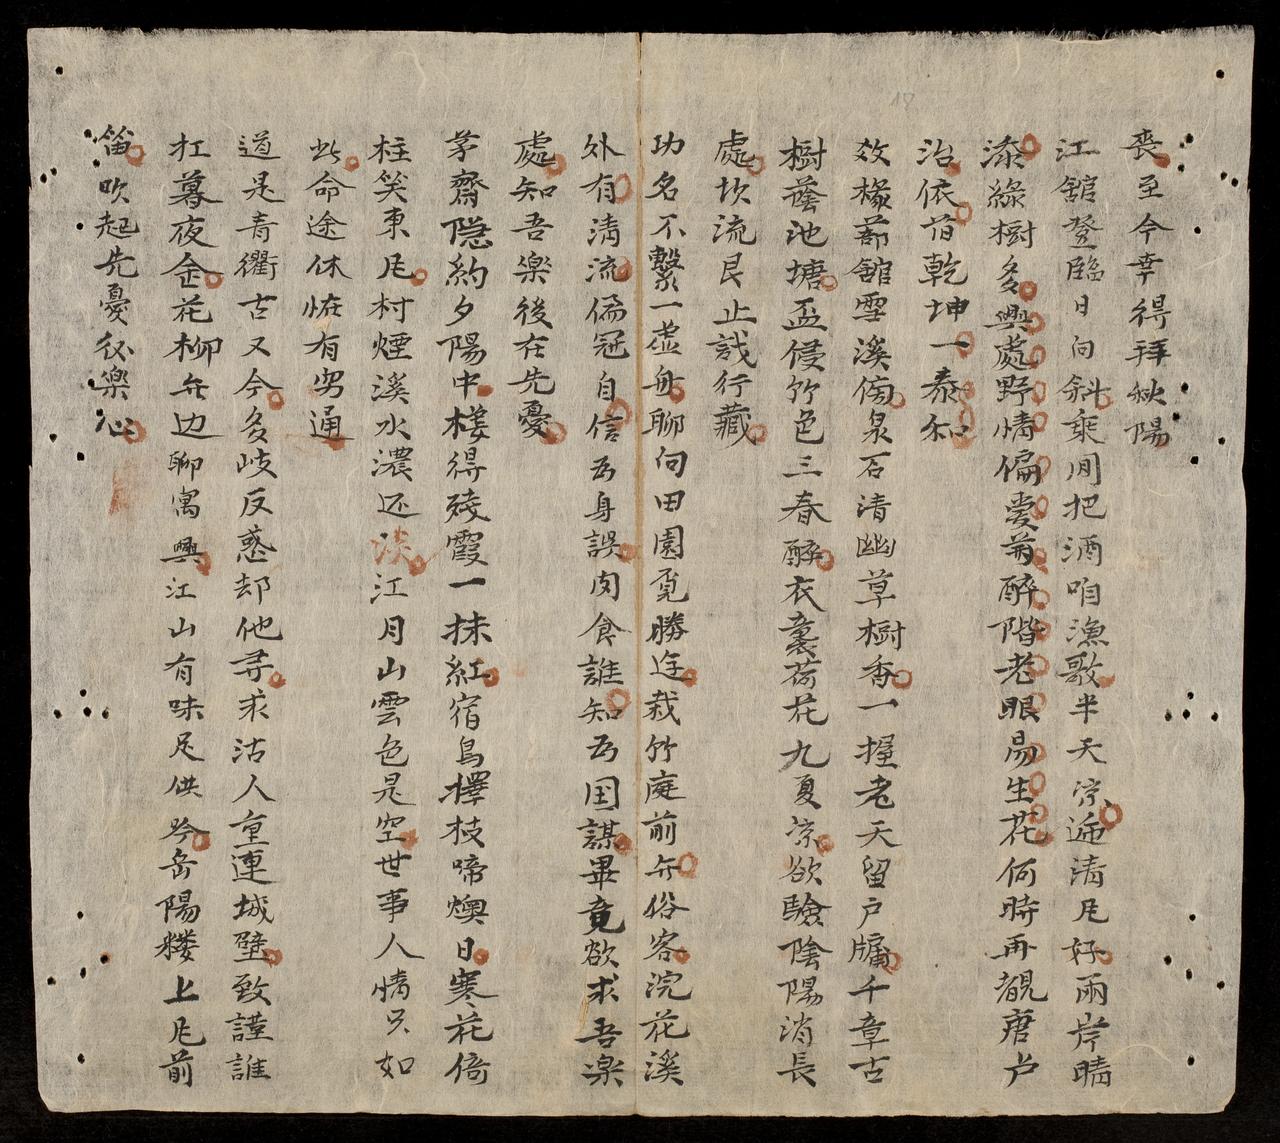 喪至今幸得拜秋陽
江舘登臨日向斜乗閒把酒咱漁歌半天凉逓清凡好兩岸晴
添綠樹多興處野情偏愛菊醉階老眼易生花何時再覩唐卢
治依旧乾坤一泰和
效椽茆舘雪溪傍泉石清幽草樹香一握老天留户牖千章古
樹蔭池塘盃侵竹色三春醉衣裛荷花九夏凉欲驗陰陽消長
處坎流艮止戝行藏
功名不繫一虚舟聊向田園覔勝逰栽竹庭前无俗客浣花溪
外有清流儒冠自信为身誤肉食誰知为国謀畢竟欲求吾楽
處知吾楽後在先憂
茅齋隠約夕陽中楼得殘霞一抹紅宿鳥擇枝啼燠日寒花倚
柱笑東凡村煙溪水濃还淡江月山雲色是空世事人情只如
此命途休恠有穷通
道是青衢古又今多岐反惑却他寻求沽人重連城璧致謹誰
扛尊夜金花柳无边聊寓興江山有味足供吟岳陽楼上凡前
笛吹起先憂後楽心
17